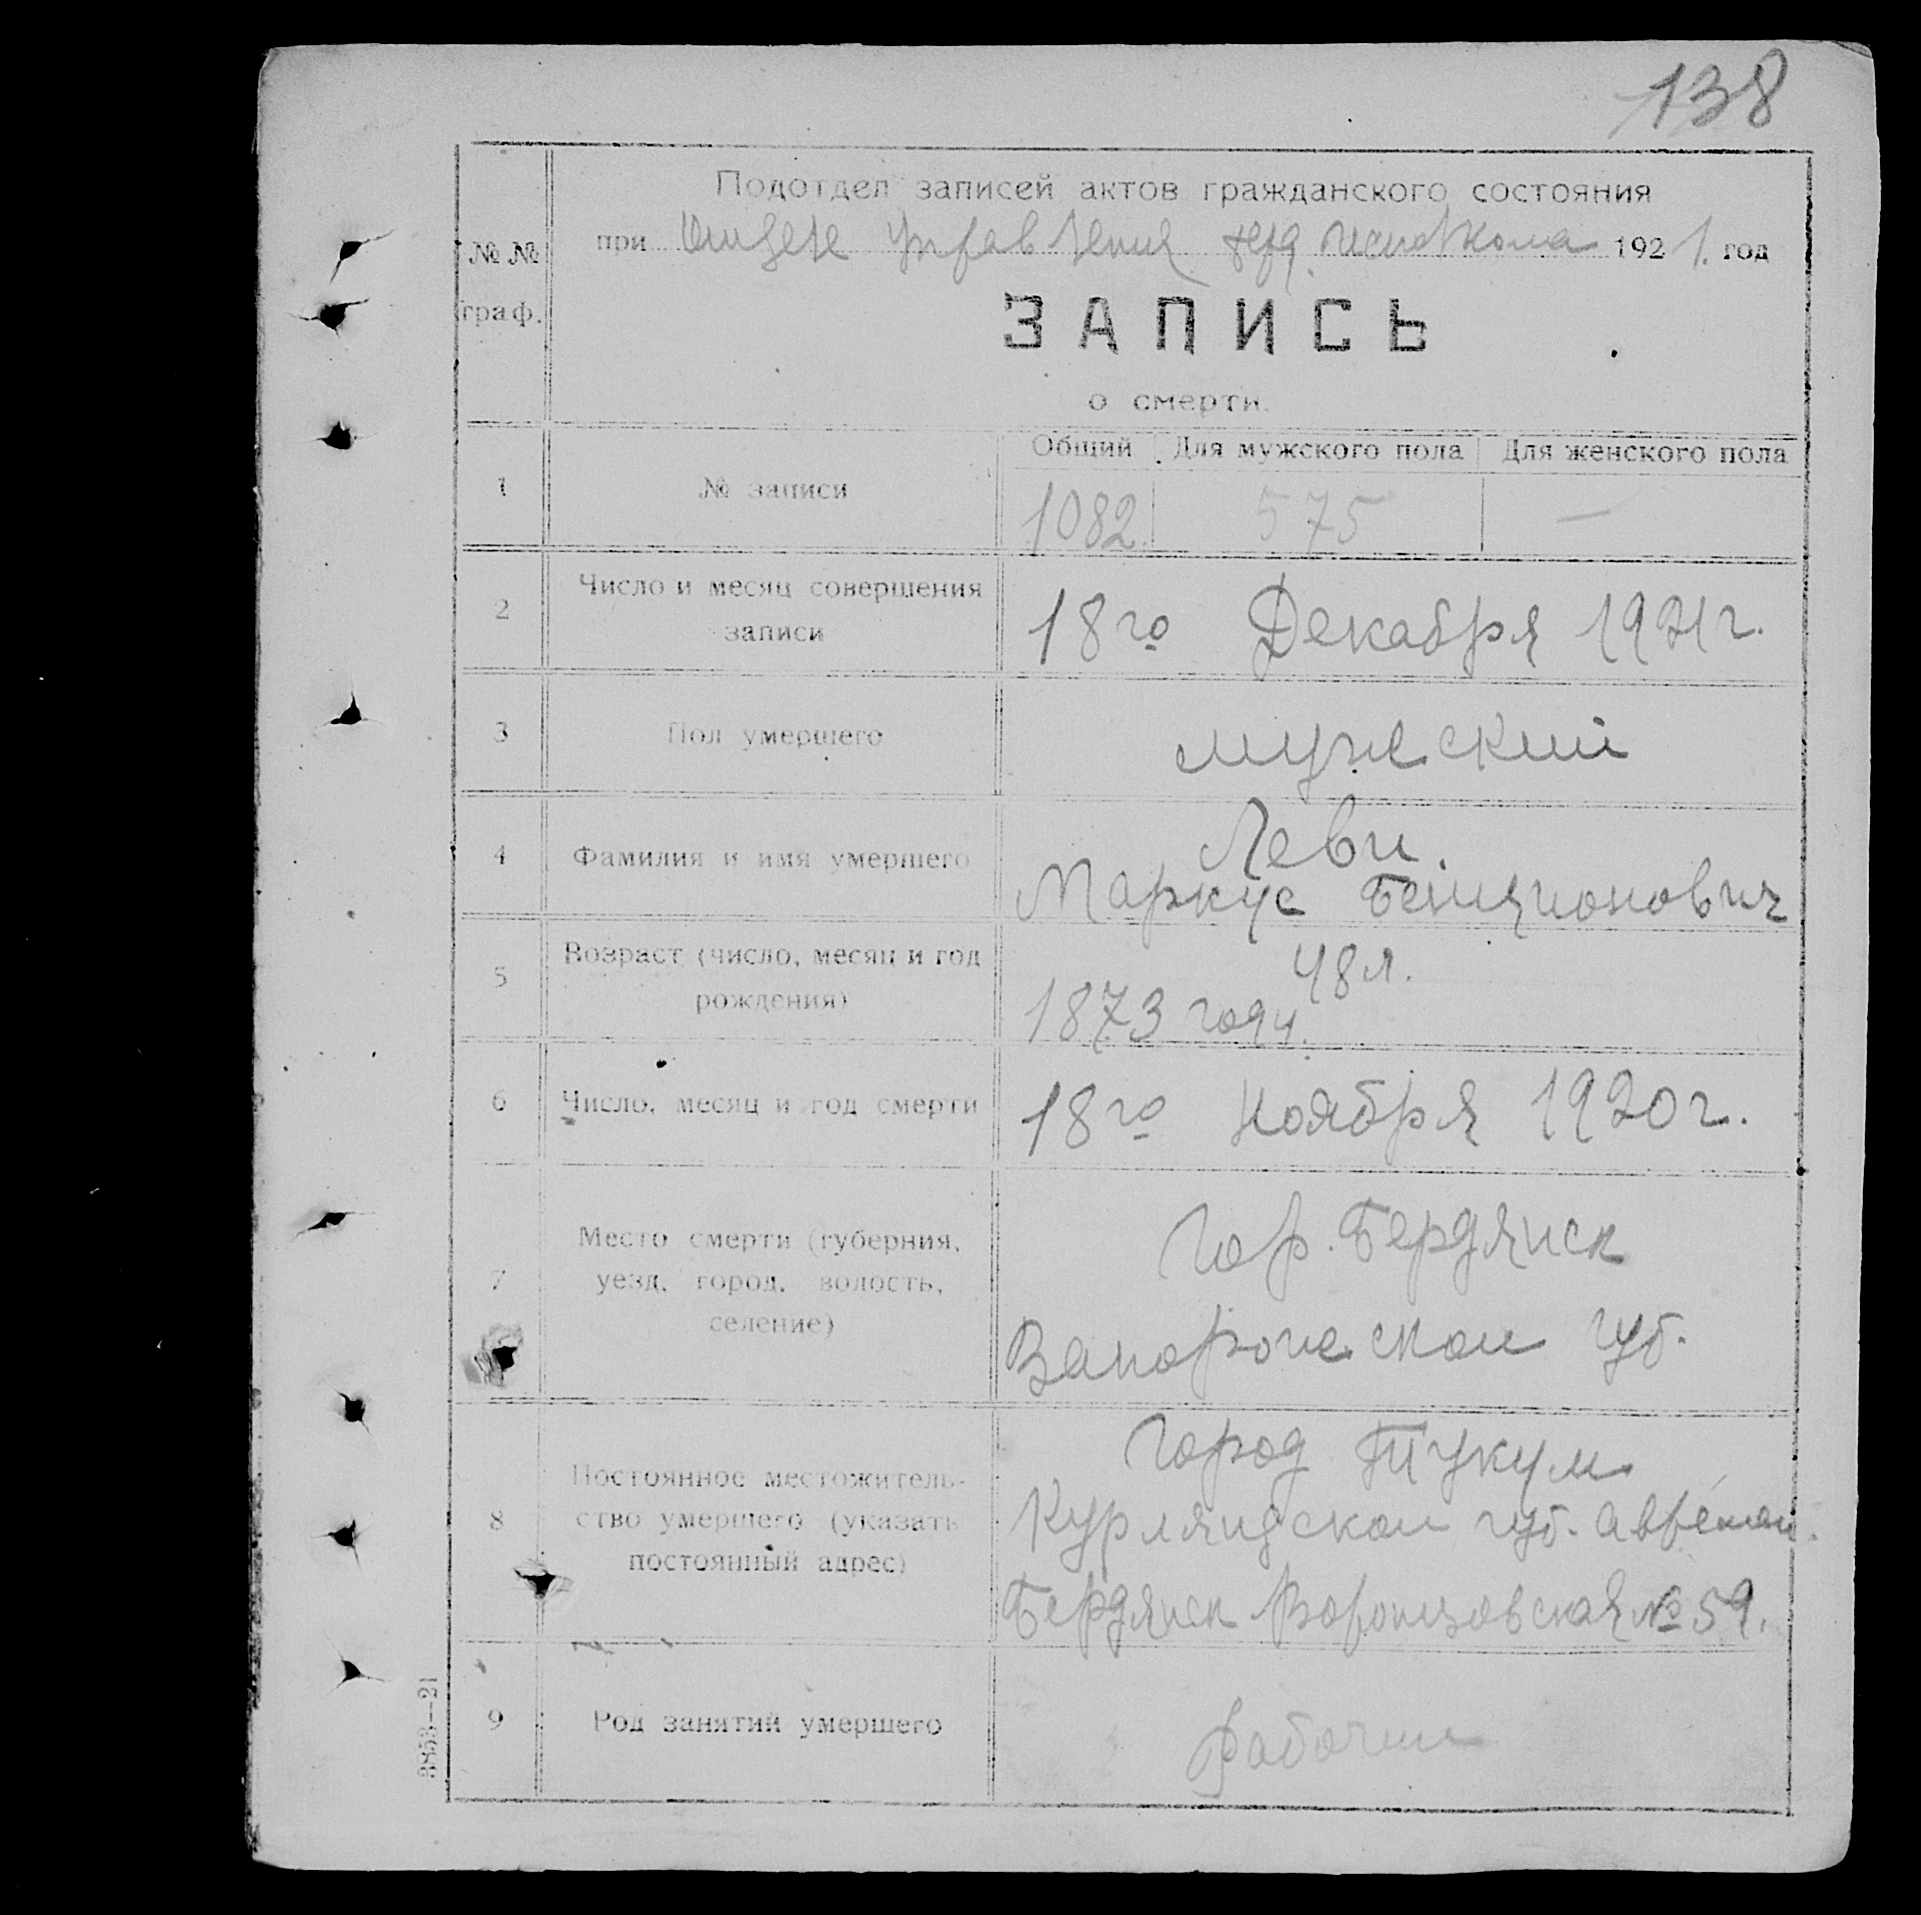 138
Подотдел записей актов гражданского состояния
№ №
при Отделе Управления Исполкома 1921. год
граф.
ЗАПИСЬ
о смерти.
Общий Для мужского пола Для женского пола
1 № записи 1082. 575 —
2 Число и месяц совершения
записи
18го Декабря 1921г.
3 Пол умершего мужеский
4 Фамилия и имя умершего
Леви.
Маркус Бенционович
5 Возраст (число, месяц и год
рождения)
48 л.
1873 году.
6 Число, месяц и год смерти 18го Ноября 1920г.
7 Место смерти (губерния,
уезд, город, волость,
селение)
Гор. Бердянск
Запорожеской губ.
8 Постоянное местожитель-
ство умершего (указать
постоянный адрес)
Город Тукум
Курляндской губ. а времен.
Бердянск Воронцовская № 59.
9 Род занятий умершего Рабочий
3853—21